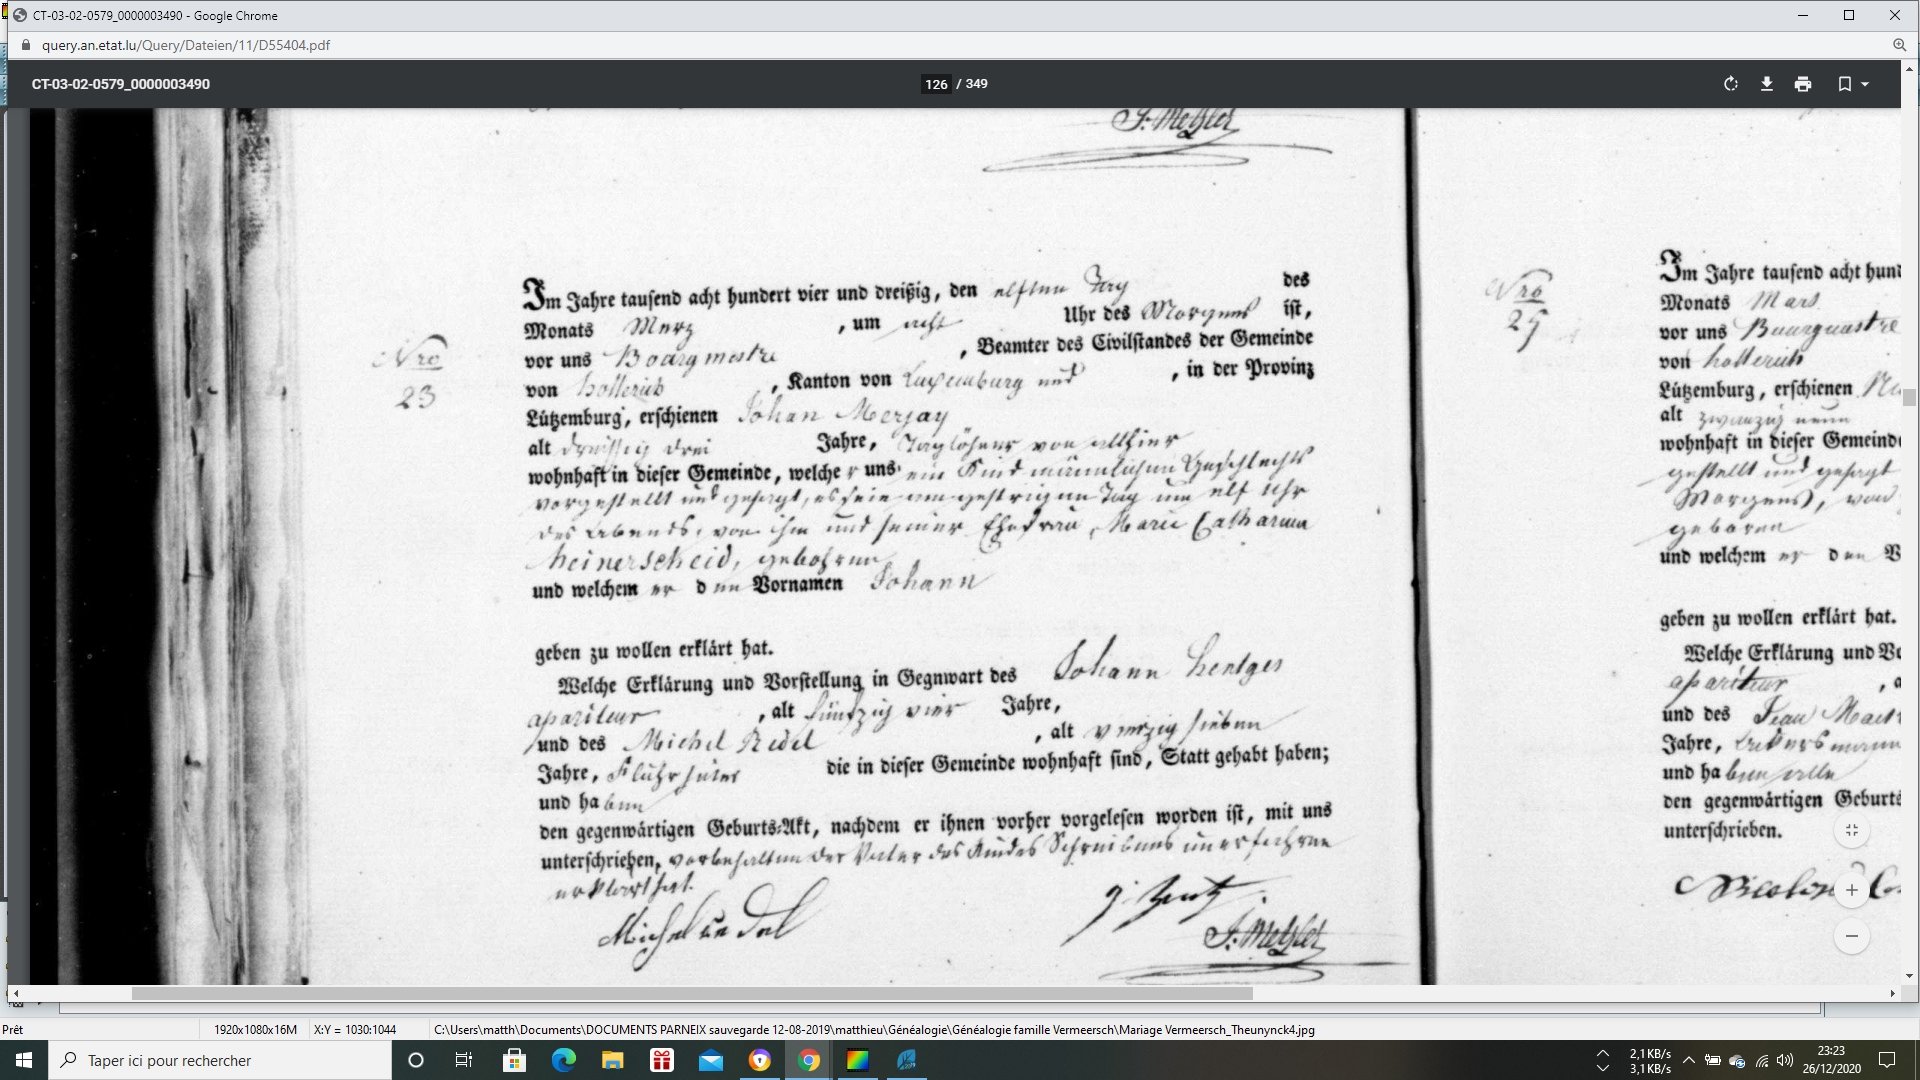 CT-03-02-0579_0000003490 - Google Chrome
query.an.etat.lu/Query/Dateien/11/D55404.pdf
CT-03-02-0579_0000003490
126 / 349
J. Metzler
Nro
23
Im Jahre tausend acht hundert vier und dreißig, den elften Tag des
Monats Merz , um acht Uhr des Morgens ist,
vor uns Bourgmestre , Beamter des Civilstandes der Gemeinde
von hollerich , Kanton von Luxemburg und , in der Provinz
Lützemburg, erschienen Johan Merjay
alt dreissig drei Jahre, Taglöhner von allhier
wohnhaft in dieser Gemeinde, welcher uns ein Kind männlichen Geschlechts
vorgestellt und gesagt, es seie am gestrigen Tag um elf Uhr
des Abends, von ihm und seiner Ehefrau Marie Catharina
heinerscheid, gebohren
und welchem er den Vornamen Johann
geben zu wollen erklärt hat.
Welche Erklärung und Vorstellung in Gegnwart des Johann hentges
apariteur , alt fünfzig vier Jahre,
und des Michel Redel , alt vierzig sieben
Jahre, Fluhrhüter die in dieser Gemeinde wohnhaft sind, Statt gehabt haben;
und haben
den gegenwärtigen Geburts-Akt, nachdem er ihnen vorher vorgelesen worden ist, mit uns
unterschrieben, vorbehalten der Vater des Kindes Schreibens unerfahren
erklärt hat.
J. Metzler
Nro
Im Jahre tausend acht
Monats Mars
vor uns
von hollerich
Lützemburg, erschienen
alt zwanzig neun
wohnhaft in dieser
gestellt und gesagt
Morgens, von
geboren
und welchem er den
geben zu wollen erklärt hat.
Welche Erklärung und
apariteur
und des Jean
Jahre,
und haben alle
den gegenwärtigen
unterschrieben.
Prêt
1920x1080x16M
X:Y = 1030:1044
C:\Users\matth\Documents\DOCUMENTS PARNEIX sauvegarde 12-08-2019\matthieu\Généalogie\Généalogie famille Vermeersch\Mariage Vermeersch_Theunynck4.jpg
Taper ici pour rechercher
2,1 KB/s
3,1 KB/s
23:23
26/12/2020